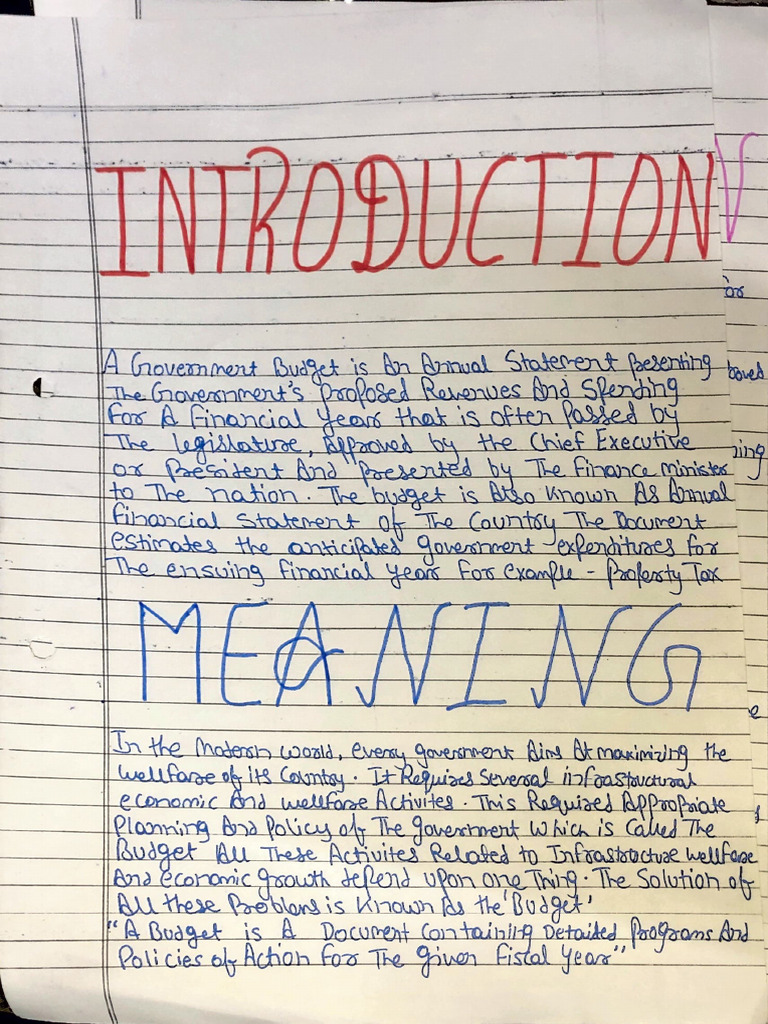 INTRODUCTION
A Government Budget is An Annual Statement Presenting
The Government's Proposed Revenues And Spending
For A Financial Year that is often Passed by
The legislature, Approved by the Chief Executive
or President And Presented by The Finance minister
to The nation. The budget is Also Known As Annual
Financial Statement of The Country The Document
estimates the anticipated government expenditures for
The ensuing financial year For example - Property Tax
MEANING
In the Modern world, every government Aims At maximizing the
wellfare of its Country. It Requires Several infrastructural
economic And wellfare Activites. This Required Appropriate
Planning And Policy of The government which is Called The
Budget All These Activites Related to Infrastructure wellfare
And economic growth depend upon one Thing. The Solution of
All these Problems is Known As the 'Budget'
"A Budget is A Document Containing Detailed Programs And
Policies of Action For The given Fiscal Year"